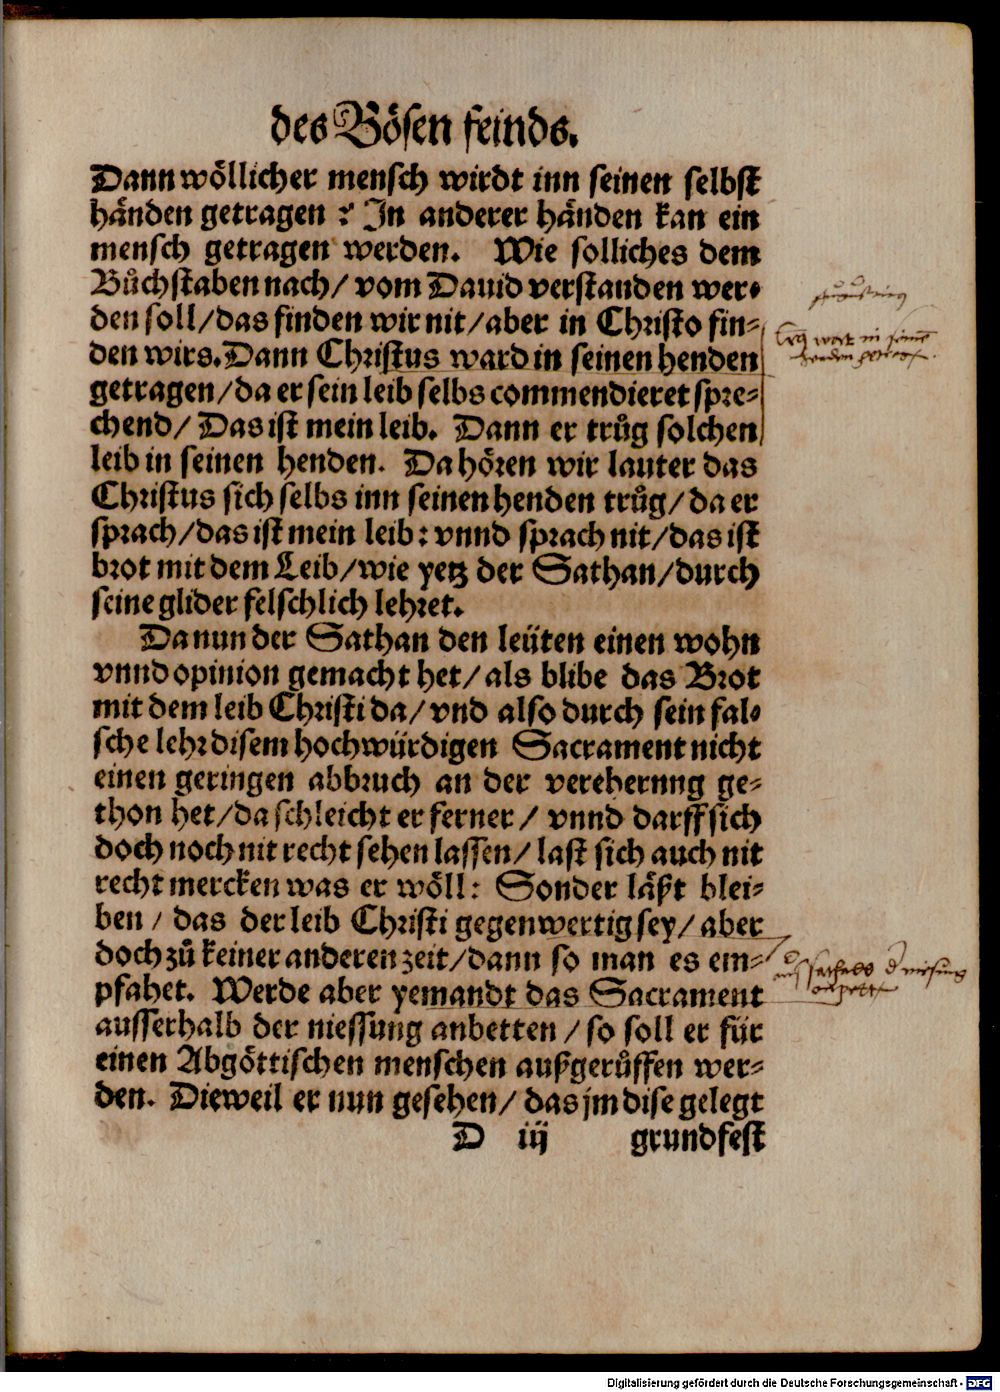 des Bösen feinds.
Dann wöllicher mensch wirdt inn seinen selbst
händen getragen ? In anderer händen kan ein
mensch getragen werden. Wie solliches dem
Bůchstaben nach/ vom Dauid verstanden wer⸗
den soll/das finden wir nit/aber in Christo fin⸗
den wirs. Dann Christus ward in seinen henden
getragen/da er sein leib selbs commendieret spre⸗
chend/ Das ist mein leib. Dann er trůg solchen
leib in seinen henden. Da hören wir lauter das
Christus sich selbs inn seinen henden trůg/da er
sprach/das ist mein leib: vnnd sprach nit/das ist
brot mit dem Leib/wie yetz der Sathan/durch
seine glider felschlich lehret.
Da nun der Sathan den leüten einen wohn
vnnd opinion gemacht het/als blibe das Brot
mit dem leib Christi da/vnd also durch sein fal⸗
sche lehr disem hochwürdigen Sacrament nicht
einen geringen abbruch an der verehernng ge⸗
thon het/da schleicht er ferner/ vnnd darff sich
doch noch nit recht sehen lassen/ last sich auch nit
recht mercken was er wöll: Sonder läßt blei⸗
ben/ das der leib Christi gegenwertig sey/ aber
doch zů keiner anderen zeit/dann so man es em⸗
pfahet. Werde aber yemandt das Sacrament
ausserhalb der niessung anbetten/so soll er für
einen Abgöttischen menschen außgerůffen wer⸗
den. Dieweil er nun gesehen/ das jm dise gelegt
D iij grundfest
Digitalisierung gefördert durch die Deutsche Forschungsgemeinschaft - DFG